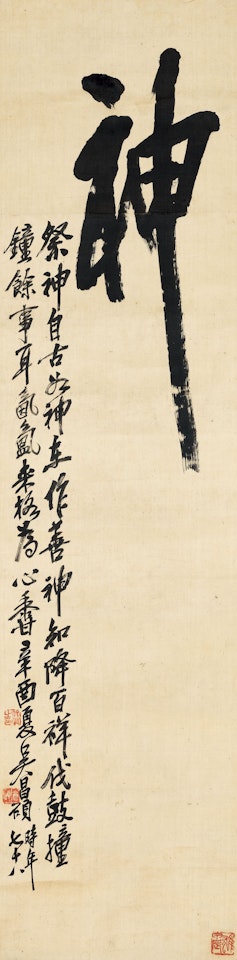 神
祭神自古如神在作善神知降百祥伐鼓撞
鐘餘事耳氤氳來格為心香辛酉夏吳昌碩
時年七十八